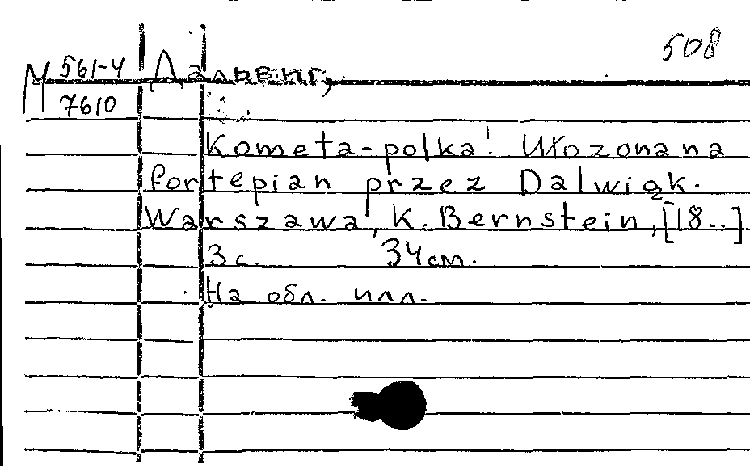 508
М 561-4
7610
Kometa-polka! Ułozona na
fortepian przez Dalwięk.
Warszawa, K. Bernstein, [18..]
3 с. 34 см.
На обл. илл.